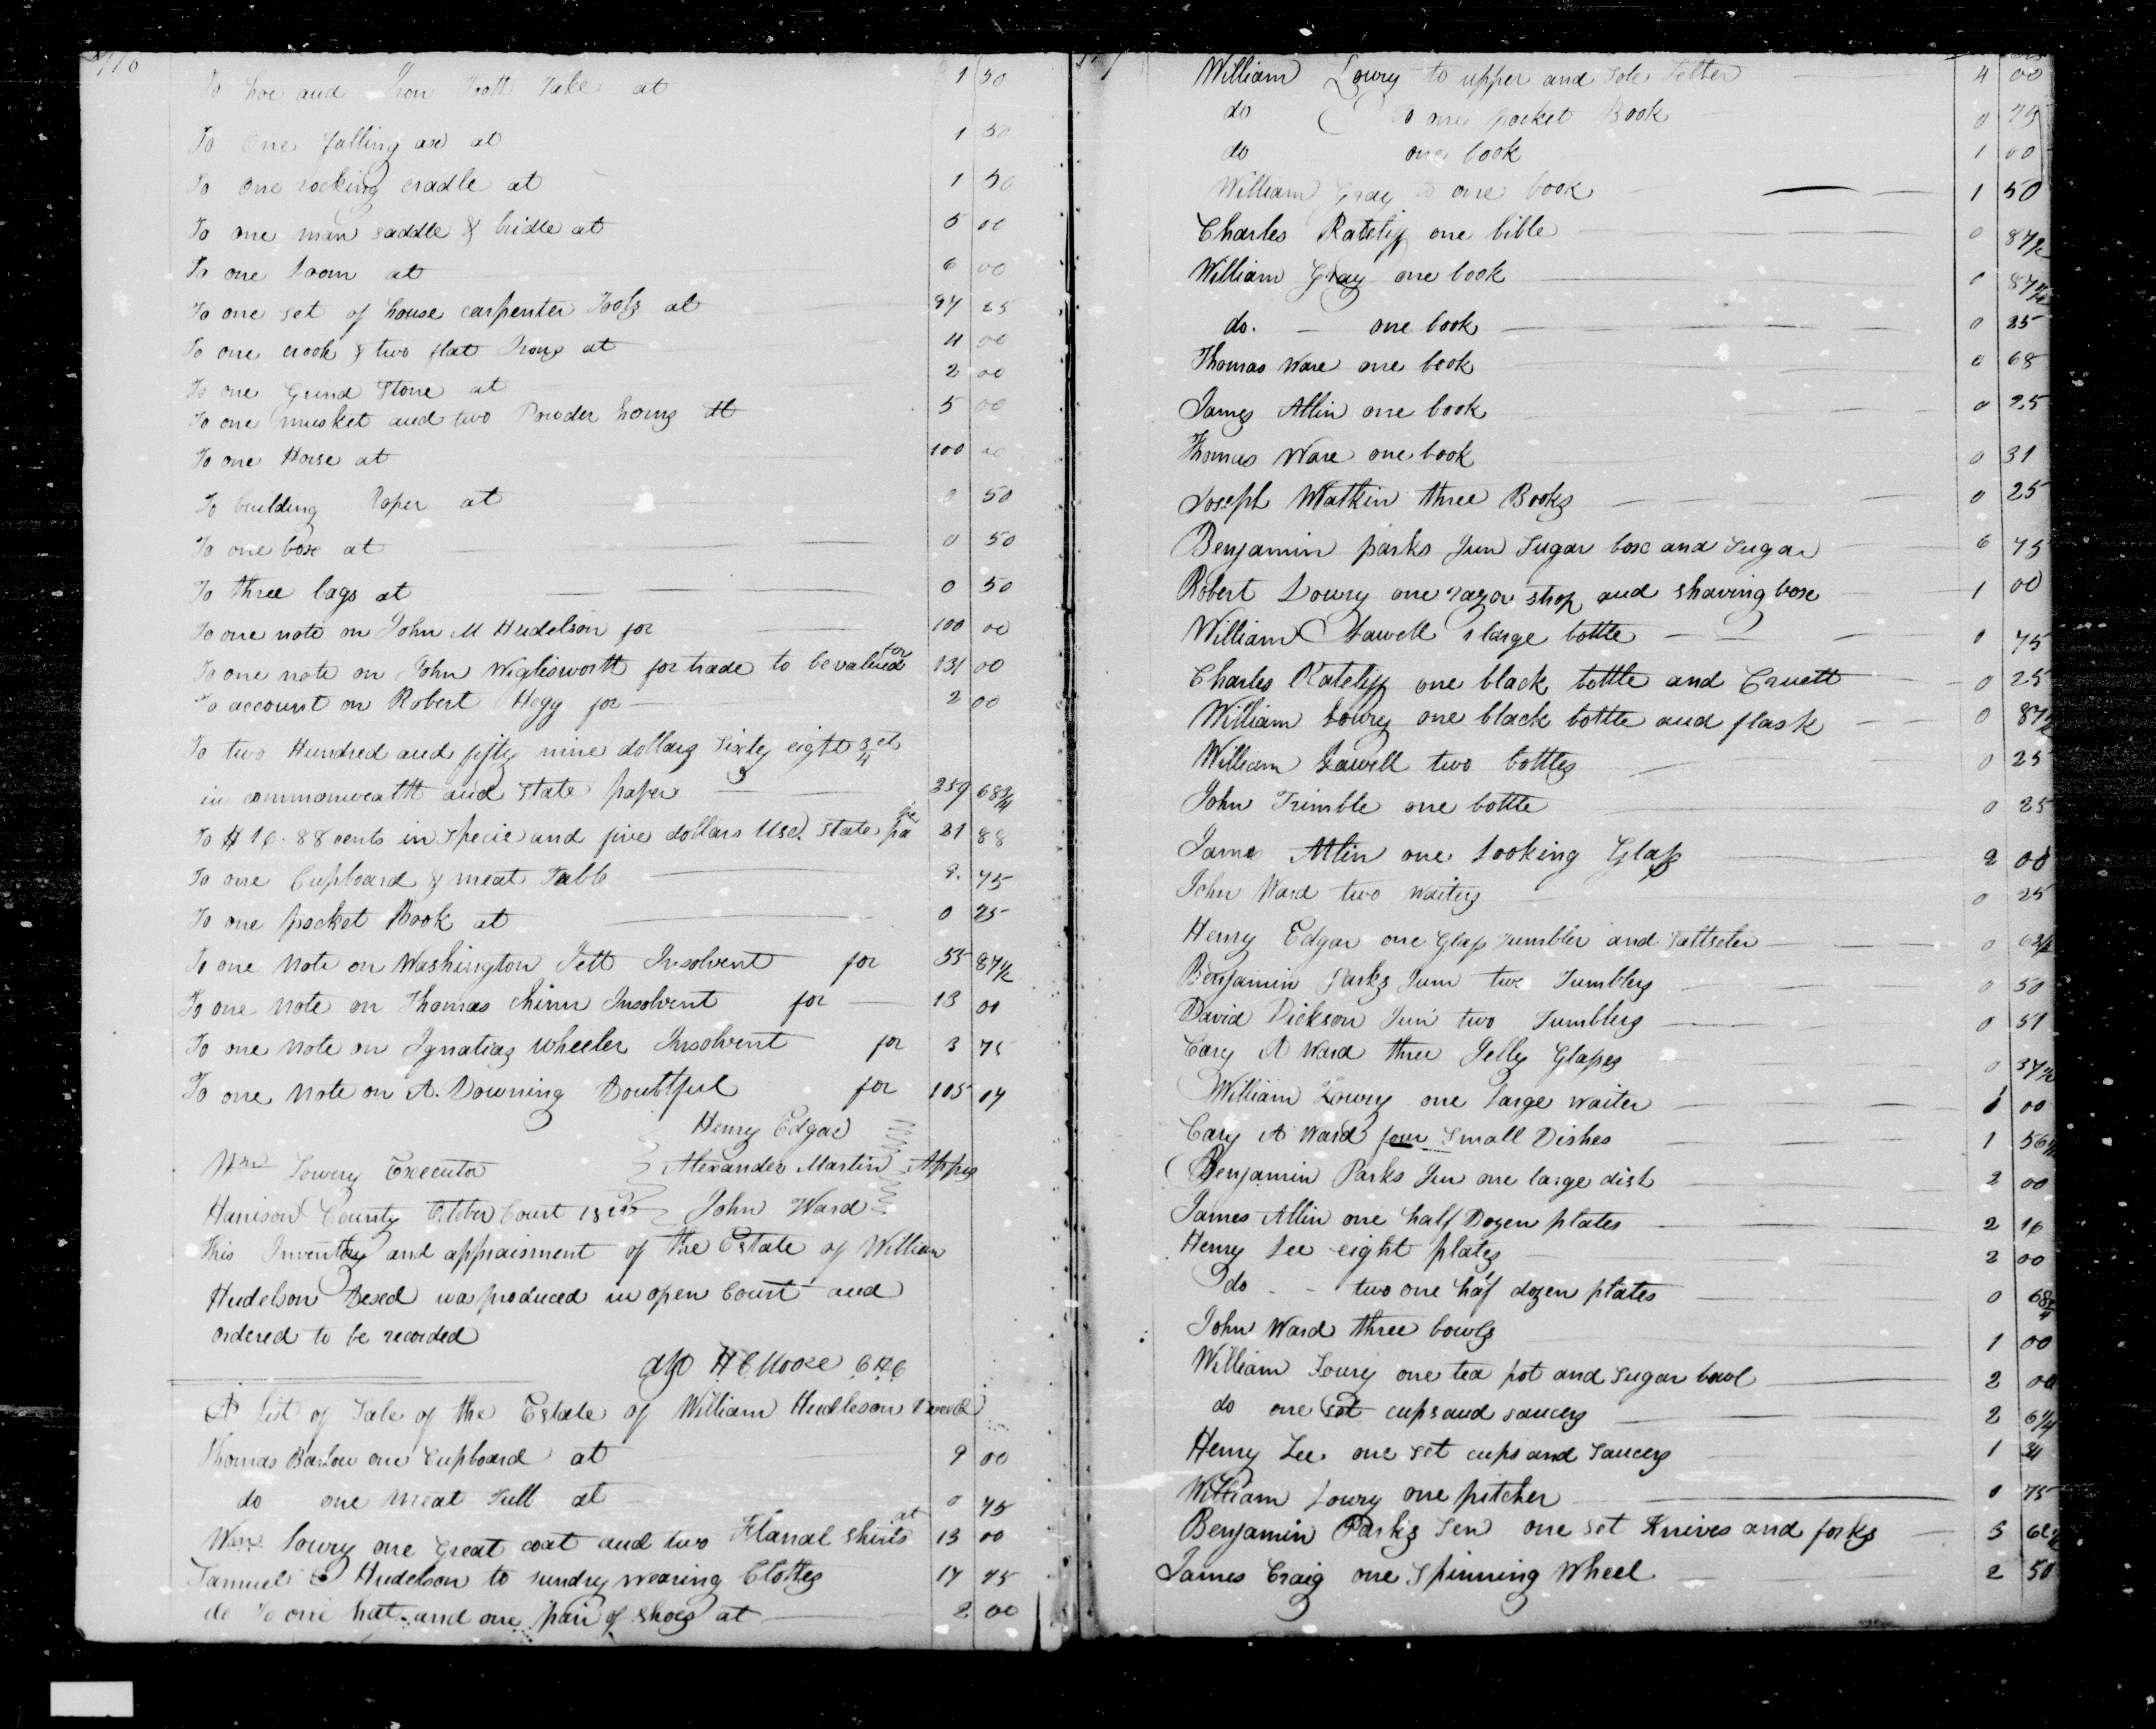 To hoe and Iron Tooth Rake at 1 50
To one falling axe at 1 50
To one rocking cradle at 1 50
To one man saddle & bridle at 5 00
To one Loom at 6 00
To one set of house carpenter Tools at 25
To one crook & two flat Irons at 4 00
To one Grind Stone at 2 00
To one musket and two Powder horns at 5 00
To one Horse at 100 00
To building Paper at 0 50
To one box at 0 50
To three bags at 0 50
To one note on John M Hudelson for 100 00
To one note on John Wiglesworth for trade to be valued for 131 00
To account on Robert Hogg for 2 00
To two Hundred and fifty nine dollars Sixty eight 3/4 cts
in commonwealth and State paper 259 68 3/4
To $ 16. 88 cents in Specie and five dollars State pa per 21 88
To one Cupboard & meat Table 9. 75
To one pocket Book at 0 25
To one Note on Washington Jett Insolvent for 55 87 1/2
To one note on Thomas Chinn Insolvent for 13 01
To one note on Ignatias Wheeler Insolvent for 3 75
To one note on A. Downing Doubtful for 105 04
Henry Edgar
Wm Lowry Executor Alexander Martin Apprs
Harrison County October Court John Ward
This Inventory and appraisment of the Estate of William
Hudelson Decd was produced in open Court and
ordered to be recorded
att H C Moore C H C
A List of Sale of the Estate of William Hudleson Deceed
Thomas Barlow one Cupboard at 9 00
do one meat Tub at 0 75
Wm Lowry one great coat and two Flanal Shirts at 13 00
Samuel Hudelson to sundry wearing Clothes 17 75
do To one hat and one pair of shoes at 2 00
William Lowry to upper and Sole Letter 4 00
do To one pocket Book 0 75
do one book 1 00
William Gray to one book 1 50
Charles Ratclif one bible 0 87 1/2
William Gray one book 0 87 1/2
do. one book 0 25
Thomas Ware one book 0 68
James Allin one book 0 25
Thomas Ware one book 0 31
Joseph Watkin three Books 0 25
Benjamin parks Jun Sugar box and Sugar 6 75
Robert Lowry one razor strop and shaving box 1 00
William Lawell 1 large bottle 0 75
Charles Ratclif one black bottle and Cruett 0 25
William Lowry one black bottle and flask 0 87 1/2
William Lawell two bottles 0 25
John Trimble one bottle 0 25
James Allin one Looking Glass 2 00
John Ward two waiters 0 25
Henry Edgar one Glass Tumbler and Saltseler 0 62 1/2
Benjamin Parks Junr two Tumblers 0 50
David Dickson Jun two Tumblers 0 51
Cary A Ward three Jelly Glasses 0 37 1/2
William Lowry one large waiter 1 00
Cary A Ward four Small Dishes 1 56 1/4
Benjamin Parks Jun one large dish 2 00
James Allin one half Dozen plates 2 16
Henry Lee eight plates 2 00
do two one half dozen plates 0 68 3/4
John Ward three bowls 1 00
William Lowry one tea pot and Sugar bowl 2 00
do one set cups and saucers 2 6 1/4
Henry Lee one set cups and Saucers 1 31
William Lowry one pitcher 0 75
Benjamin Parks Sen one set Knives and forks 3 62 1/2
James Craig one Spinning Wheel 2 50